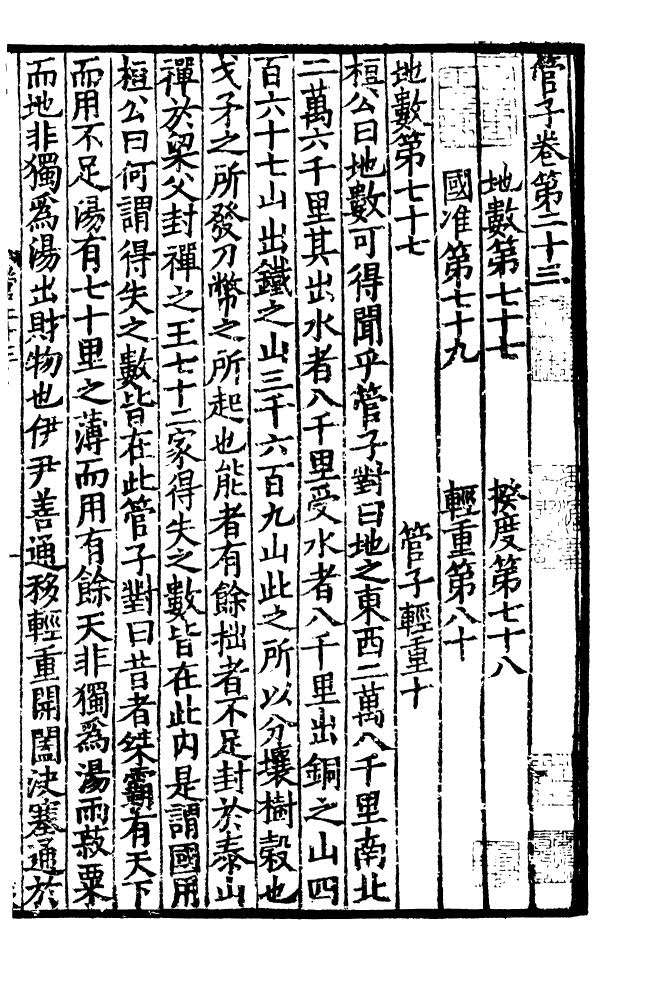 管子卷第二十三
地數第七十七　揆度第七十八
國准第七十九　輕重第八十
地數第七十七　管子輕重十
桓公曰地數可得聞乎管子對曰地之東西二萬八千里南北
二萬六千里其出水者八千里受水者八千里出銅之山四
百六十七山出鐵之山三千六百九山此之所以分壤樹榖也
戈矛之所發刀幣之所起也能者有餘拙者不足封於泰山
禪於梁父封禪之王七十二家得失之數皆在此内是謂國用
桓公曰何謂得失之數皆在此管子對曰昔者桀霸有天下
而用不足湯有七十里之薄而用有餘天非獨爲湯雨菽粟
而地非獨爲湯出財物也伊尹善通移輕重開闔決塞通於